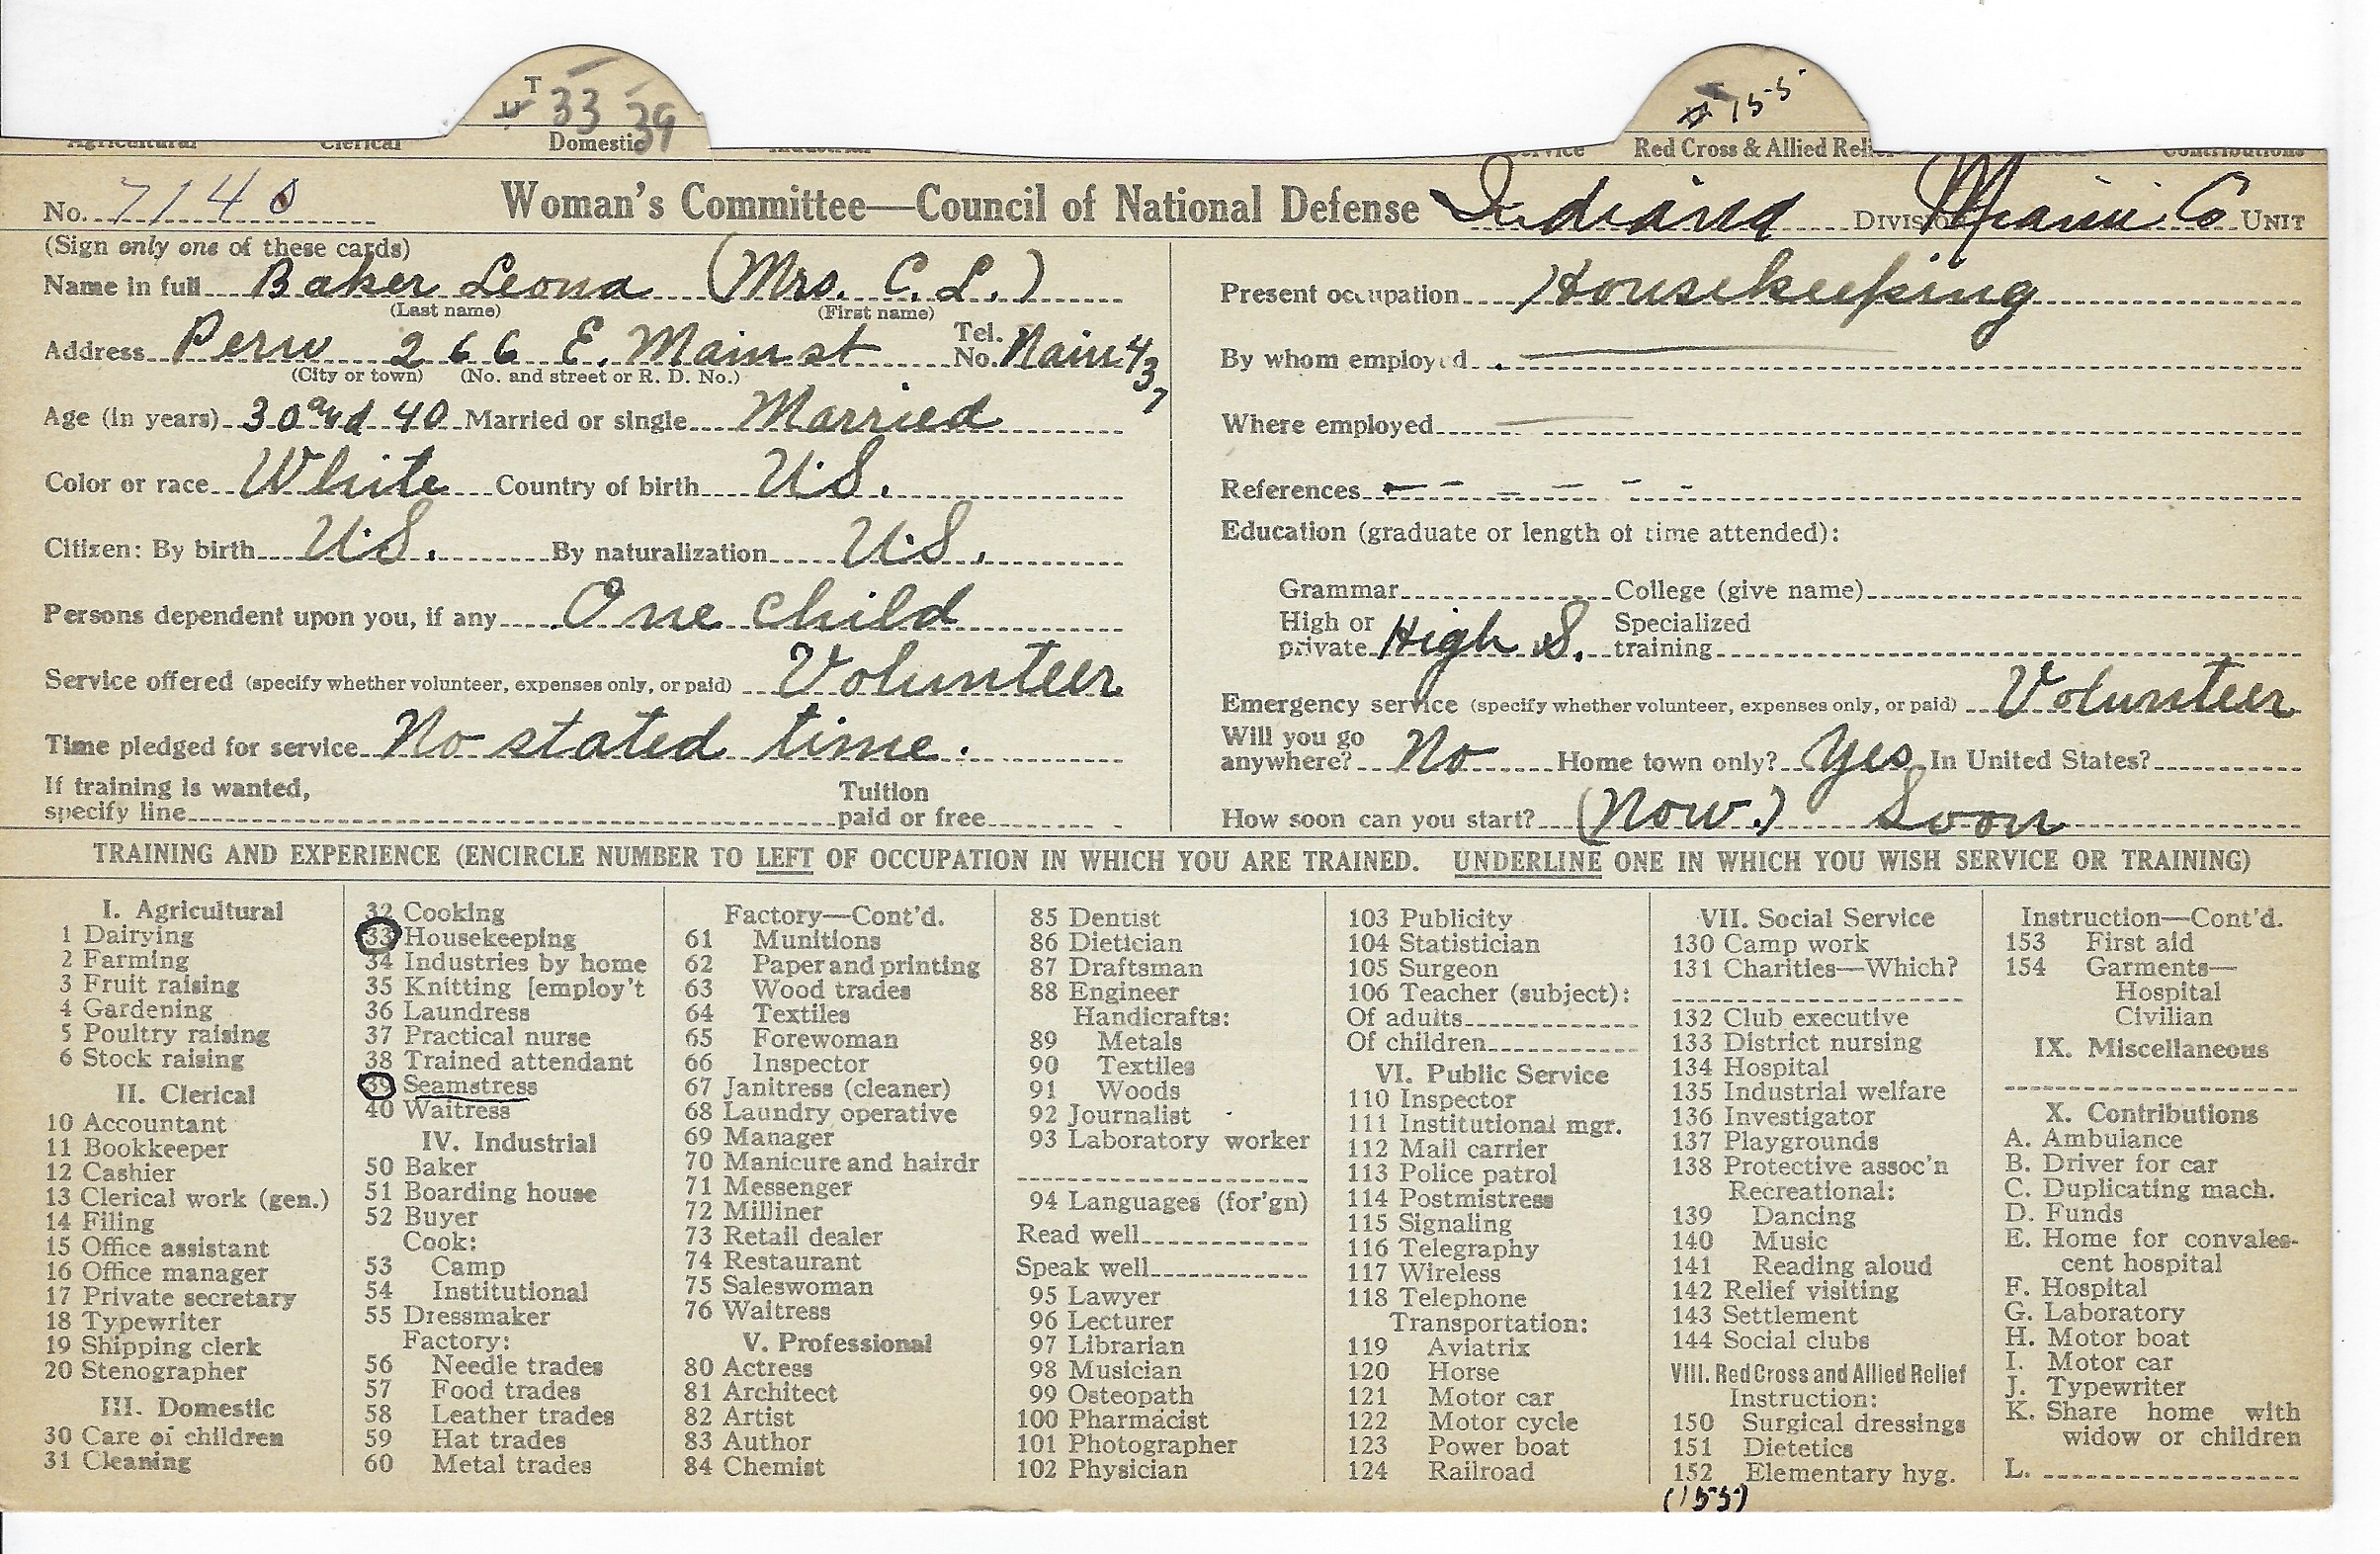 T
33 39
155
Domestic
Red Cross & Allied Relief
No. 7140
Woman's Committee—Council of National Defense Indiana Division Miami Co Unit
(Sign only one of these cards)
Name in full Baker Leona (Mrs. C. L.)
(Last name) (First name)
Address Peru 266 E. Main st Tel. No. Main 437
(City or town) (No. and street or R. D. No.)
Age (in years) 30 and 40 Married or single Married
Color or race White Country of birth U.S.
Citizen: By birth U.S. By naturalization U.S.
Persons dependent upon you, if any One child
Service offered (specify whether volunteer, expenses only, or paid) Volunteer
Time pledged for service No stated time.
If training is wanted,
specify line Tuition paid or free
Present occupation Housekeeping
By whom employed
Where employed
References
Education (graduate or length of time attended):
Grammar College (give name)
High or private High S. Specialized training
Emergency service (specify whether volunteer, expenses only, or paid) Volunteer
Will you go anywhere? No Home town only? Yes In United States?
How soon can you start? (Now.) Soon
TRAINING AND EXPERIENCE (ENCIRCLE NUMBER TO LEFT OF OCCUPATION IN WHICH YOU ARE TRAINED. UNDERLINE ONE IN WHICH YOU WISH SERVICE OR TRAINING)
I. Agricultural
1 Dairying
2 Farming
3 Fruit raising
4 Gardening
5 Poultry raising
6 Stock raising
II. Clerical
10 Accountant
11 Bookkeeper
12 Cashier
13 Clerical work (gen.)
14 Filing
15 Office assistant
16 Office manager
17 Private secretary
18 Typewriter
19 Shipping clerk
20 Stenographer
III. Domestic
30 Care of children
31 Cleaning
32 Cooking
33 Housekeeping
34 Industries by home
35 Knitting [employ't
36 Laundress
37 Practical nurse
38 Trained attendant
39 Seamstress
40 Waitress
IV. Industrial
50 Baker
51 Boarding house
52 Buyer
Cook:
53 Camp
54 Institutional
55 Dressmaker
Factory:
56 Needle trades
57 Food trades
58 Leather trades
59 Hat trades
60 Metal trades
Factory—Cont'd.
61 Munitions
62 Paper and printing
63 Wood trades
64 Textiles
65 Forewoman
66 Inspector
67 Janitress (cleaner)
68 Laundry operative
69 Manager
70 Manicure and hairdr
71 Messenger
72 Milliner
73 Retail dealer
74 Restaurant
75 Saleswoman
76 Waitress
V. Professional
80 Actress
81 Architect
82 Artist
83 Author
84 Chemist
85 Dentist
86 Dietician
87 Draftsman
88 Engineer
Handicrafts:
89 Metals
90 Textiles
91 Woods
92 Journalist
93 Laboratory worker
94 Languages (for'gn)
Read well
Speak well
95 Lawyer
96 Lecturer
97 Librarian
98 Musician
99 Osteopath
100 Pharmacist
101 Photographer
102 Physician
103 Publicity
104 Statistician
105 Surgeon
106 Teacher (subject):
Of adults
Of children
VI. Public Service
110 Inspector
111 Institutional mgr.
112 Mail carrier
113 Police patrol
114 Postmistress
115 Signaling
116 Telegraphy
117 Wireless
118 Telephone
Transportation:
119 Aviatrix
120 Horse
121 Motor car
122 Motor cycle
123 Power boat
124 Railroad
VII. Social Service
130 Camp work
131 Charities—Which?
132 Club executive
133 District nursing
134 Hospital
135 Industrial welfare
136 Investigator
137 Playgrounds
138 Protective assoc'n
Recreational:
139 Dancing
140 Music
141 Reading aloud
142 Relief visiting
143 Settlement
144 Social clubs
VIII. Red Cross and Allied Relief
Instruction:
150 Surgical dressings
151 Dietetics
152 Elementary hyg.
(155)
Instruction—Cont'd.
153 First aid
154 Garments—
Hospital
Civilian
IX. Miscellaneous
X. Contributions
A. Ambulance
B. Driver for car
C. Duplicating mach.
D. Funds
E. Home for convales-
cent hospital
F. Hospital
G. Laboratory
H. Motor boat
I. Motor car
J. Typewriter
K. Share home with
widow or children
L.